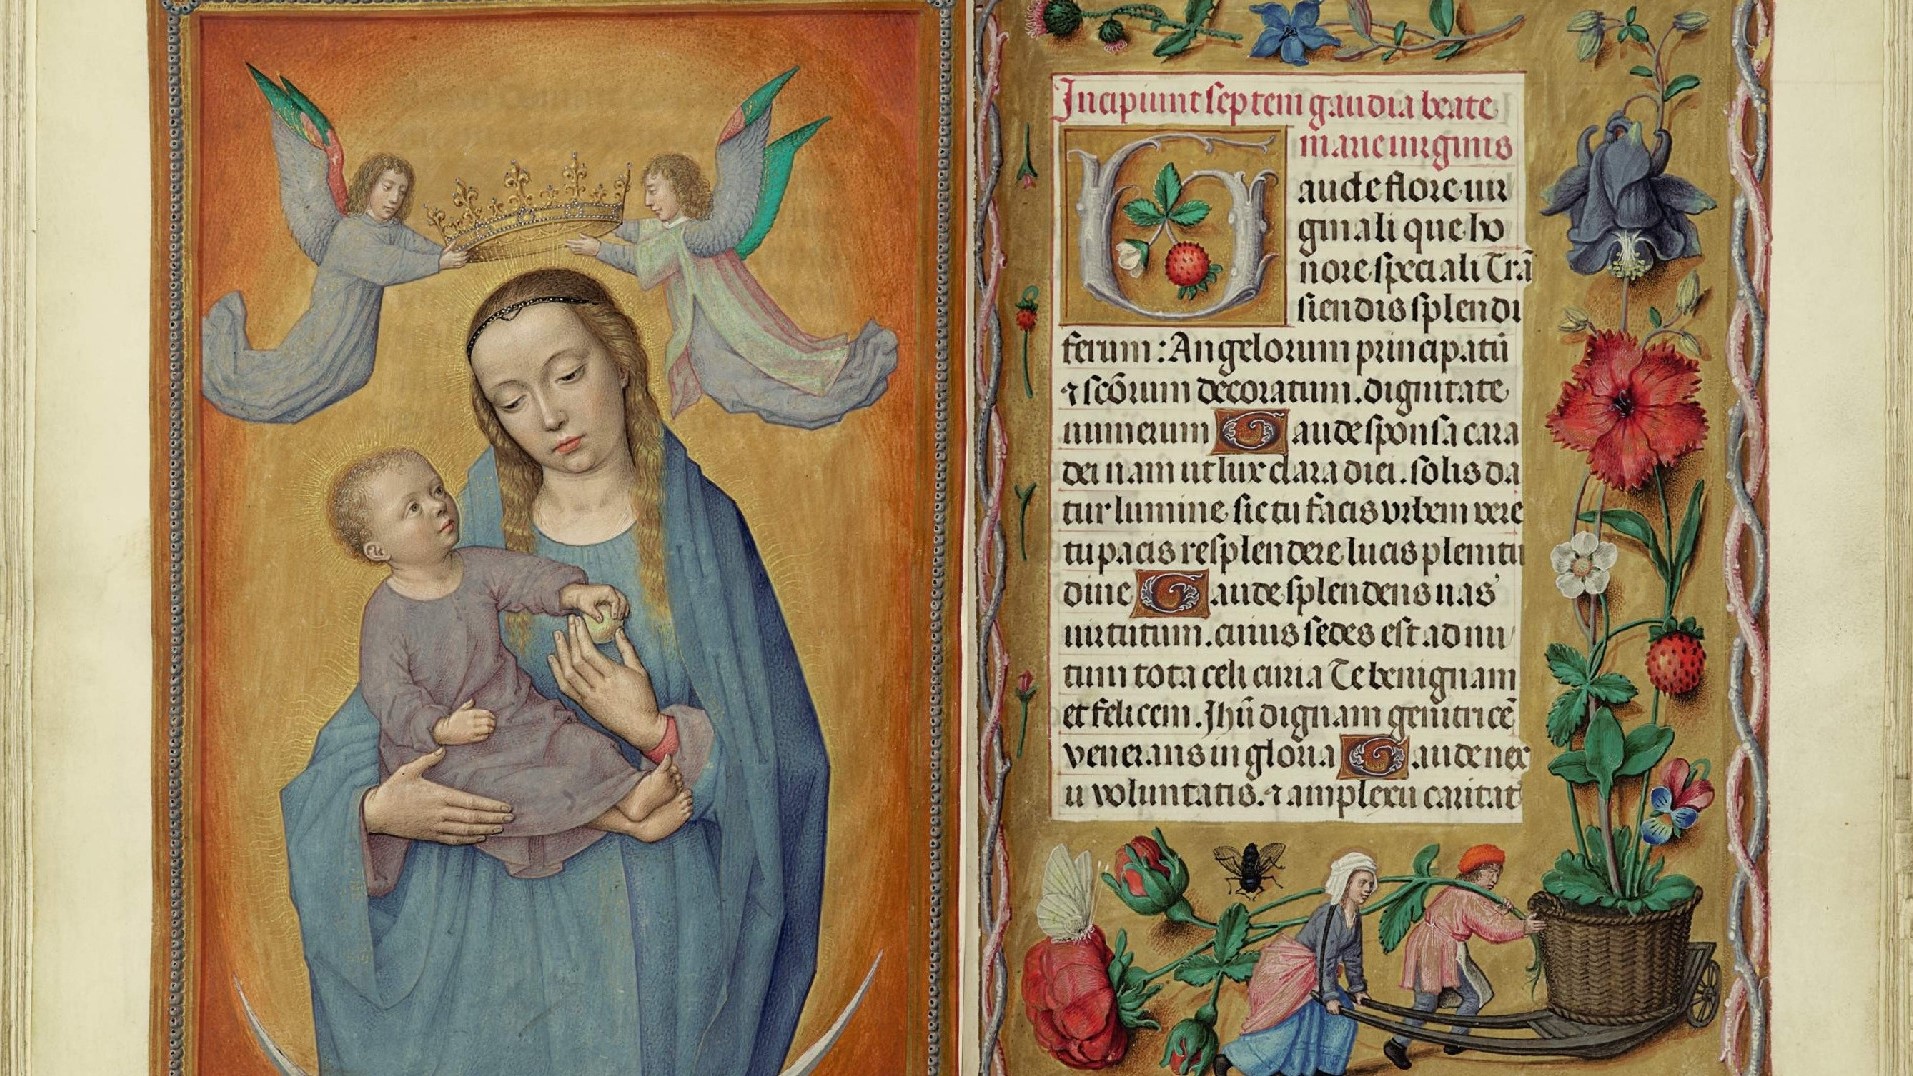 Incipiunt septem gaudia beate
marie uirginis
Gaude flore uir
ginali que ho
nore speciali Trā
siendis splendi
ferum : Angelorum principatū
⁊ scōrum decoratum. dignitate
numerum Gaude sponsa cara
dei nam ut lux clara diei. solis da
tur lumine sic tu facis vrbem vere
tu pacis resplendere lucis plenitu
dine Gaude splendens uas
uirtutum. cuius sedes est ad nu
tum tota celi curia Te benignam
et felicem. Jhū dignam genitricē
venerans in gloria Gaude nex
u voluntatis. ⁊ amplexu caritat